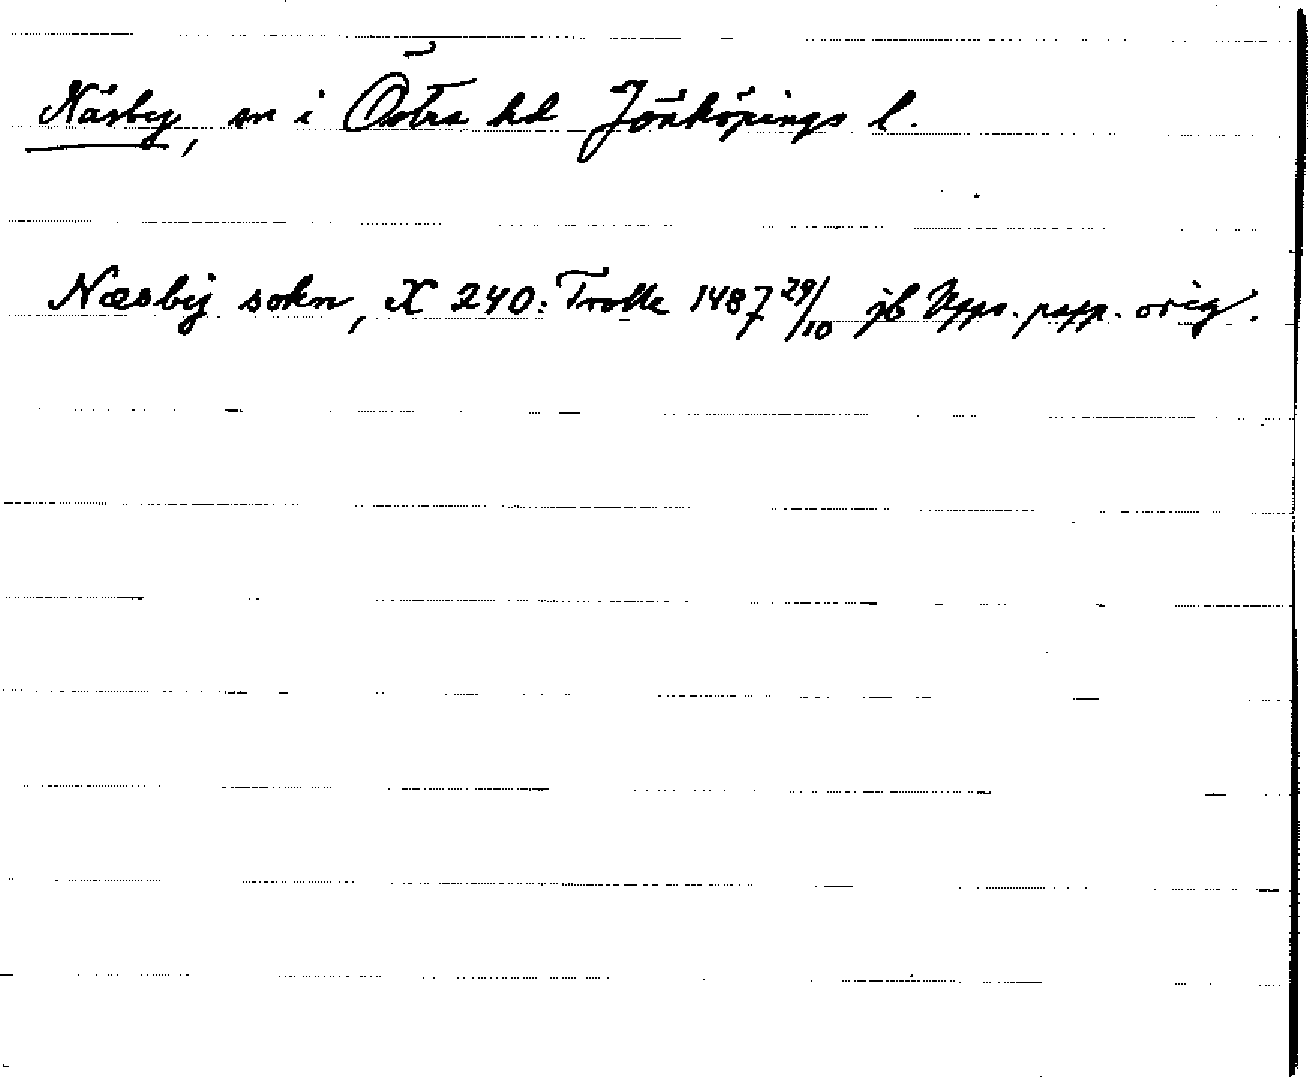 Näsby, sn i Östra hd Jönköpings l.
Næsbÿ sokn, X 240: Trolle 1487 29/10 jb Upps. papp. orig.